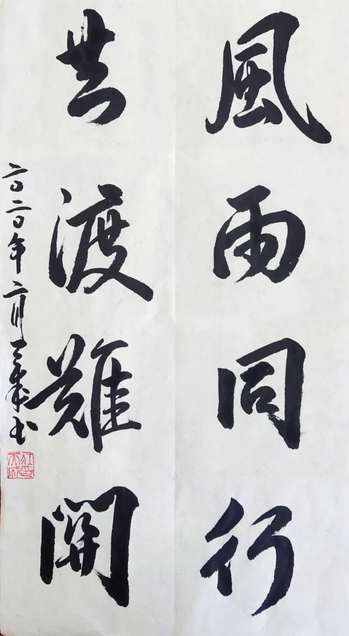 風雨同行
共渡難關
二〇二〇年二月
書